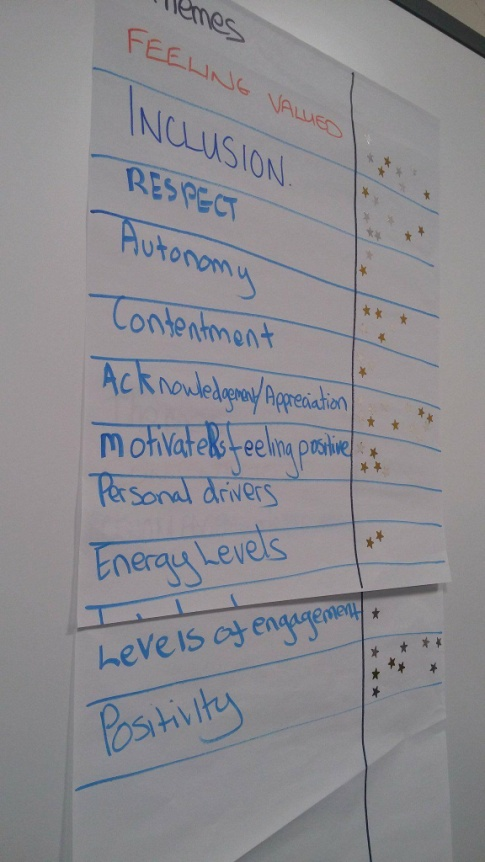 Themes
FEELING VALUED
INCLUSION.
RESPECT
Autonomy
Contentment
Acknowledgement/Appreciation
MotivateRs feeling positive
Personal drivers
Energy Levels
Levels of engagement
Positivity